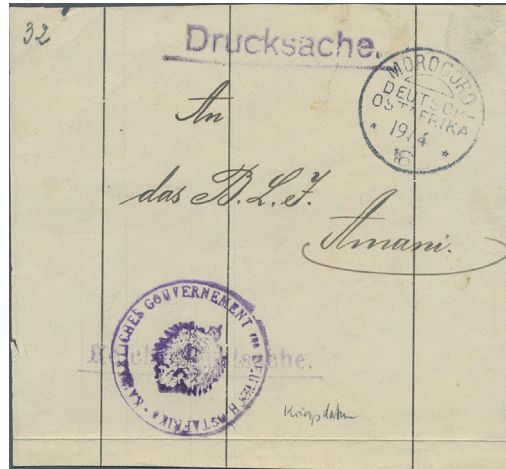 32
Drucksache.
MOROGORO
DEUTSCH-
OSTAFRIKA
19/4
16
An
das B.L.I.
Amani.
KAISERLICHES GOUVERNEMENT FÜR DEUTSCH OSTAFRIKA
Kriegsdatum